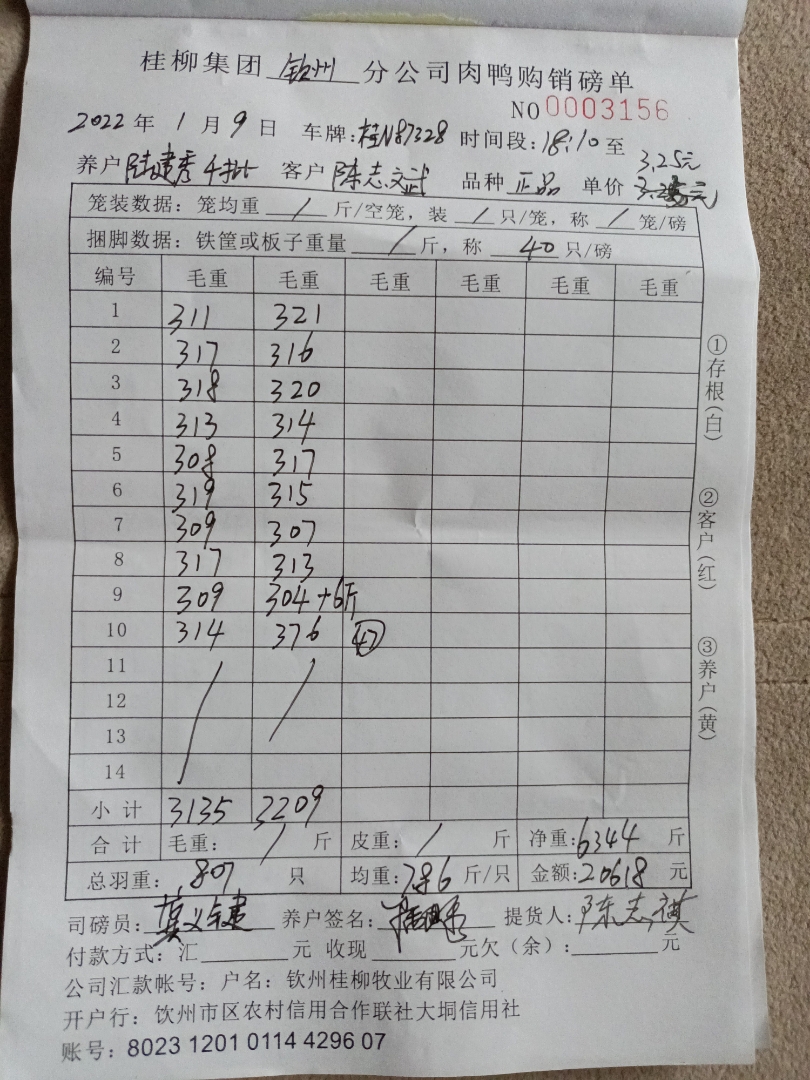 桂柳集团 钦州 分公司肉鸭购销磅单
NO 0003156
2022 年 1 月 9 日 车牌: 桂N87328 时间段: 18:10 至
3.25元
养户 陆建秀 客户 陈志文武 品种 正品 单价
笼装数据: 笼均重 / 斤/空笼, 装 / 只/笼, 称 / 笼/磅
捆脚数据: 铁筐或板子重量 / 斤, 称 40 只/磅
编号 毛重 毛重 毛重 毛重 毛重 毛重
1 311 321
2 317 316
3 318 320
4 313 314
5 308 317
6 319 315
7 309 307
8 317 313
9 309 304+6斤
10 314 376 47
11
12
13
14
小计 3135 3209
合计 毛重: / 斤 皮重: / 斤 净重: 6344 斤
总羽重: 807 只 均重: 786 斤/只 金额: 20618 元
司磅员: 养户签名: 提货人: 陈志祺
付款方式: 汇 元 收现 元欠(余): 元
公司汇款帐号: 户名: 钦州桂柳牧业有限公司
开户行: 钦州市区农村信用合作联社大垌信用社
账号: 8023 1201 0114 4296 07
①存根(白)
②客户(红)
③养户(黄)